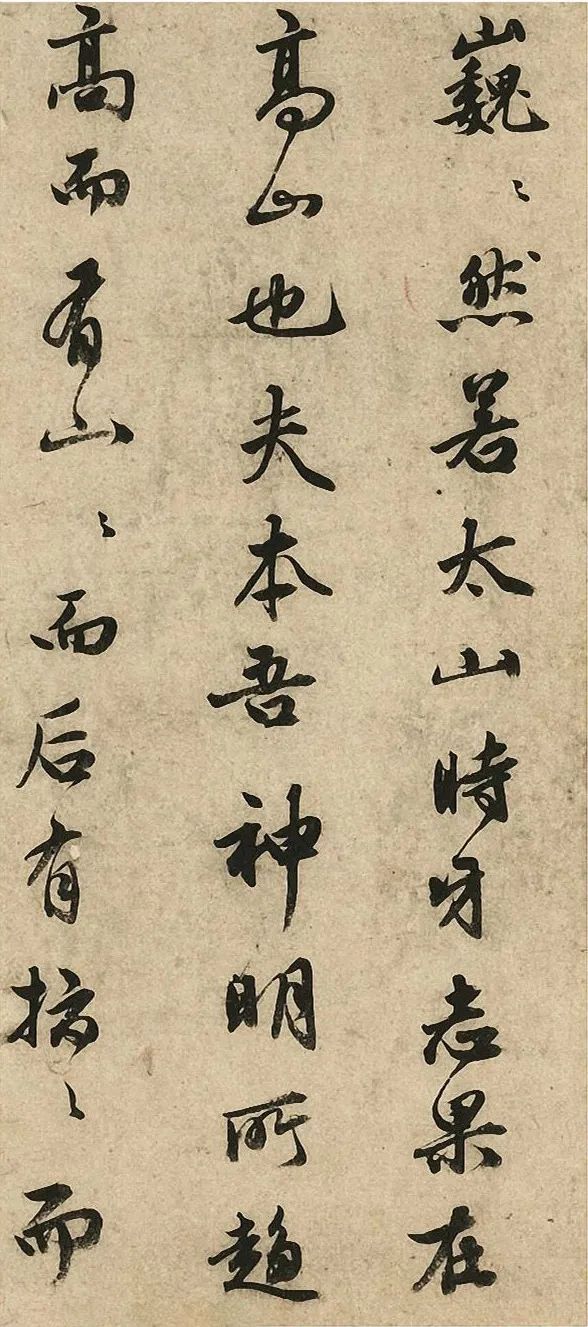 巍〻然若太山時牙志果在
高山也夫本吾神明所趨
高而有山〻而后有〻而